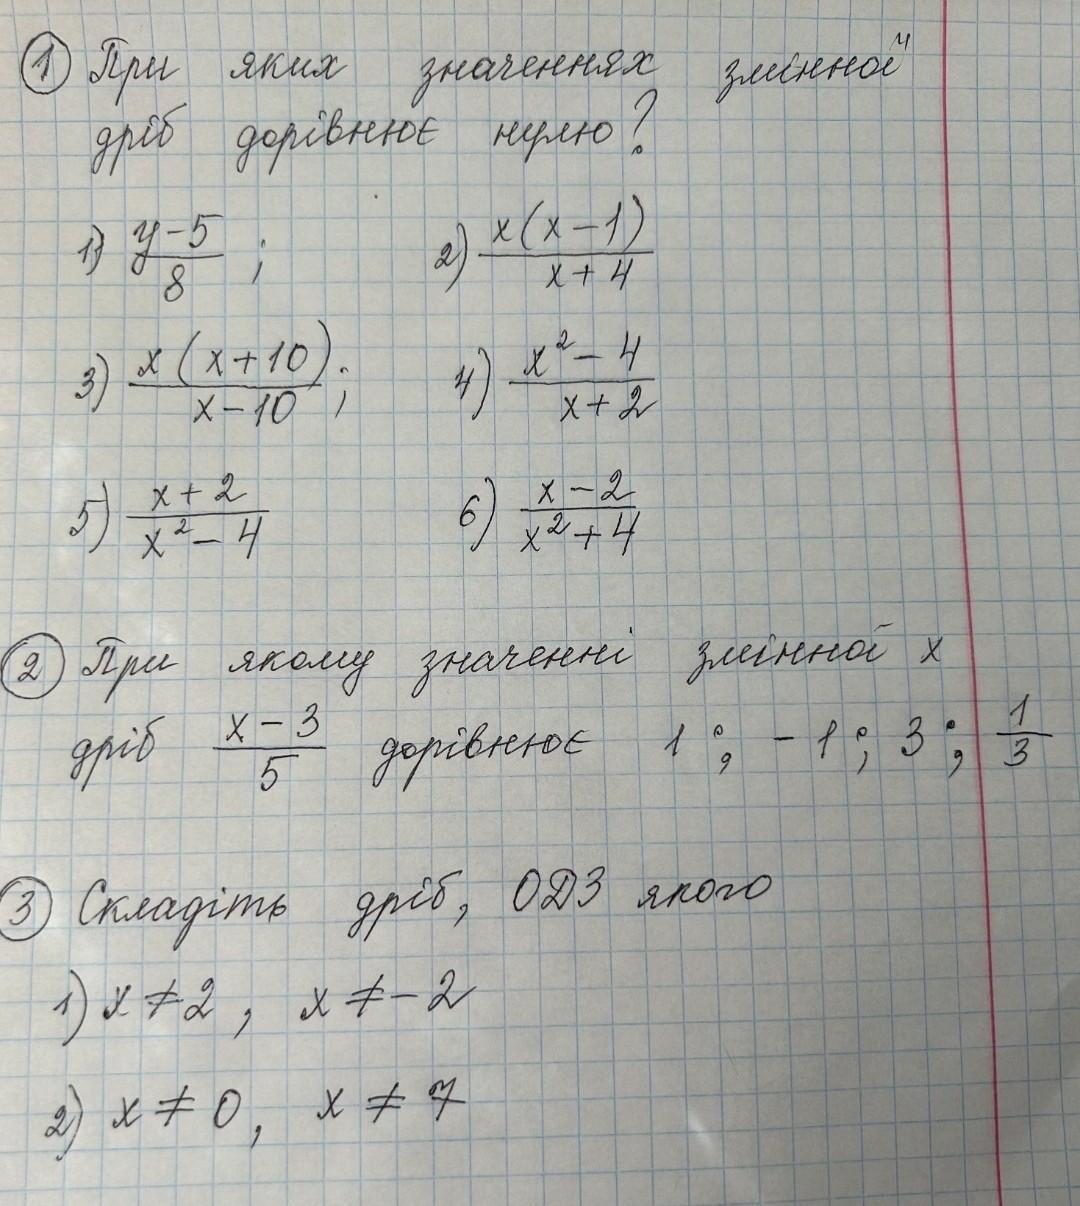 1 При яких значеннях змінної
дріб дорівнює нулю?
1) (y-5)/8 ; 2) x(x-1)/(x+4)
3) x(x+10)/(x-10) ; 4) (x²-4)/(x+2)
5) (x+2)/(x²-4) 6) (x-2)/(x²+4)
2 При якому значенні змінної x
дріб (x-3)/5 дорівнює 1 ; -1 ; 3 ; 1/3
3 Складіть дріб, ОДЗ якого
1) x ≠ 2 , x ≠ -2
2) x ≠ 0 , x ≠ 7